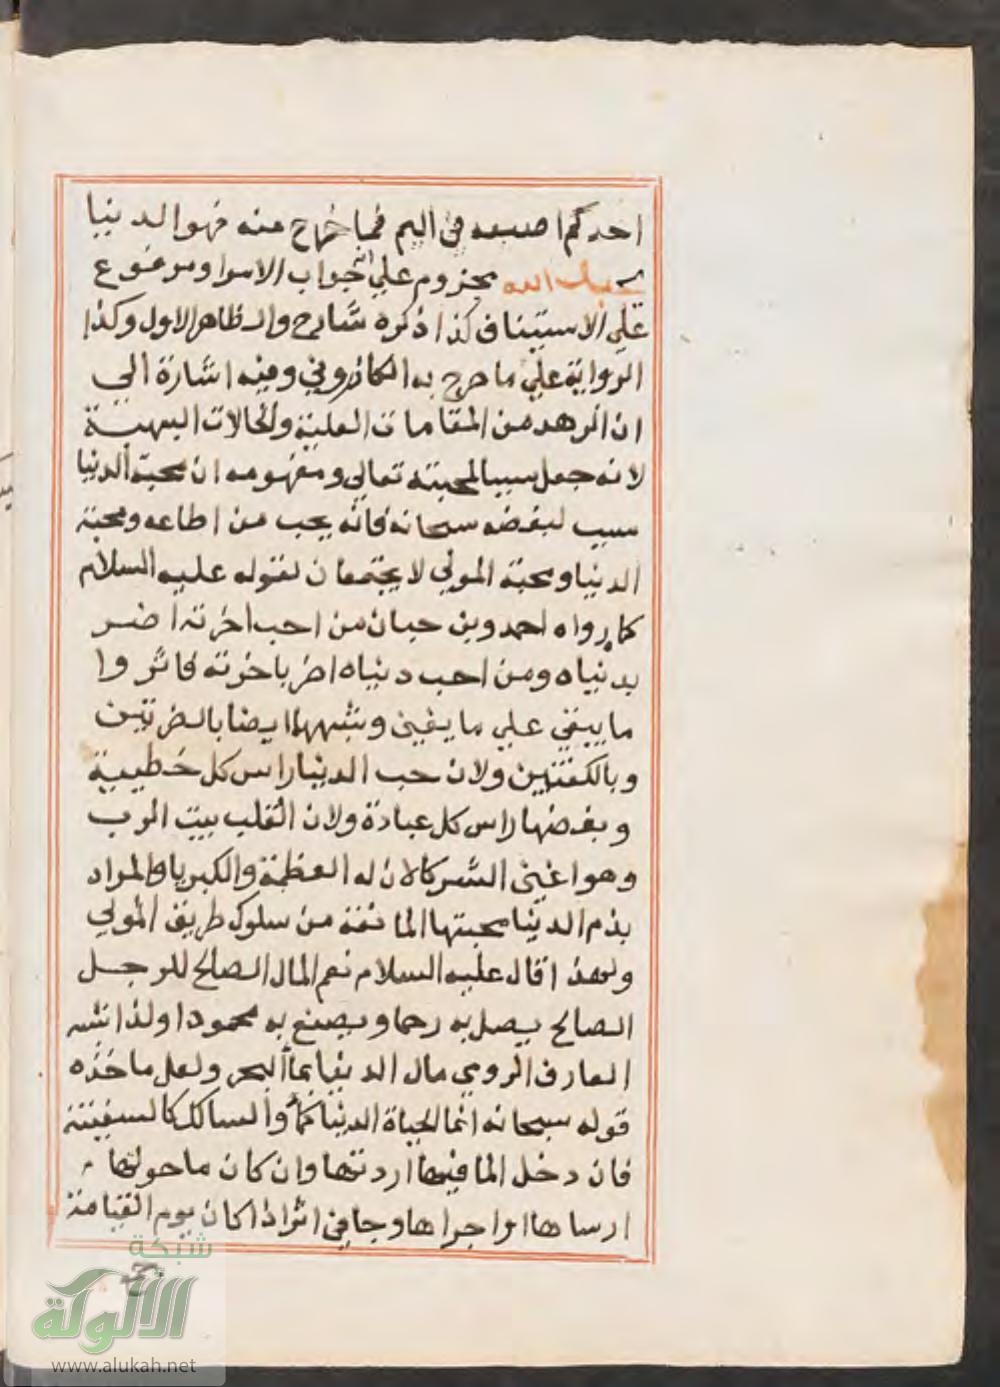 احدكم اصبعه في اليم فما خرج منه فهو الدنيا
يحبك الله مجزوم علي انه جواب الامر او مرفوع
علي الاستيناف كذا ذكره شارح والظاهر الاول وكذا
الرواية علي ما صرح به الكازروني وفيه اشارة الي
ان الزهد من المقامات العلية والحالات البهية
لانه جعل سببا لمحبته تعالي ومفهومه ان محبة الدنيا
سبب لبغضه سبحانه فانه يحب من اطاعه ومحبة
الدنيا ومحبة المولي لا يجتمعان لقوله عليه السلام
كما رواه احمد وبن حبان من احب اخرته اضر
بدنياه ومن احب دنياه اضر باخرته فاثروا
ما يبقي علي ما يفني وشبهها ايضا بالضرتين
وبالكفتين ولان حب الدنيا راس كل خطيية
وبغضها راس كل عبادة ولان القلب بيت الرب
وهو اغني الشركا لان له العظمة والكبريا والمراد
بذم الدنيا محبتها المانعة من سلوك طريق المولي
ولهذا قال عليه السلام نعم المال الصالح للرجل
الصالح يصل به رحما ويصنع به محمودا ولذا شبه
العارف الرومي مال الدنيا بماء البحر ولعل ماخذه
قوله سبحانه انما الحياة الدنيا كماء والسالك كالسفينة
فان دخل الما فيها اردتها وان كان ما حولها
ارساها او اجراها وجا في اثر اذا كان يوم القيامة
شبكة
الألوكة
www.alukah.net